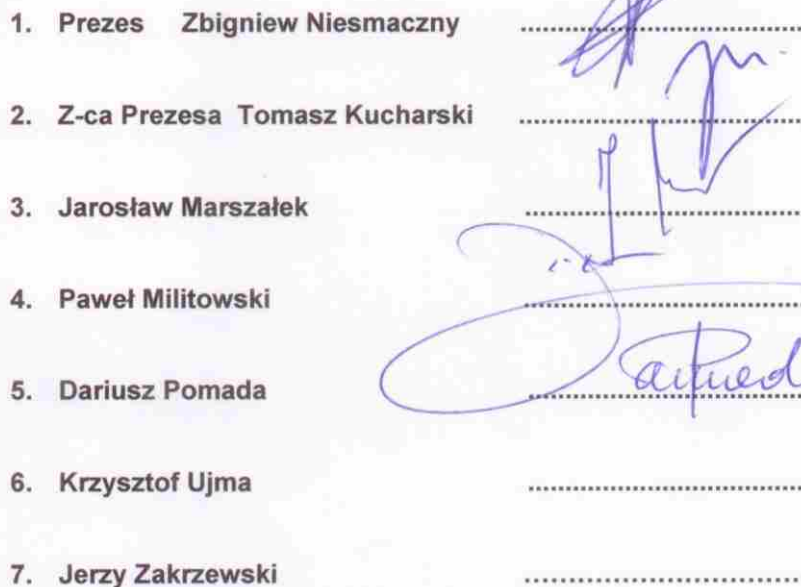 1. Prezes Zbigniew Niesmaczny ................................
2. Z-ca Prezesa Tomasz Kucharski ................................
3. Jarosław Marszałek ................................
4. Paweł Militowski ................................
5. Dariusz Pomada ................................
6. Krzysztof Ujma ................................
7. Jerzy Zakrzewski ................................